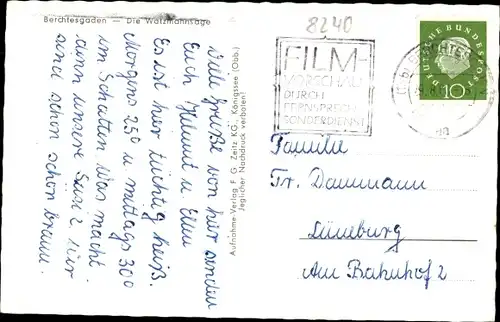 Berchtesgaden — Die Watzmannsage
8240
FILM-
VORSCHAU
DURCH
FERNSPRECH-
SONDERDIENST
DEUTSCHE BUNDESPOST
10
Viele Grüße von hier senden
Euch Helmut u. Elli
Es ist hier tüchtig heiß.
Morgens 25° u. mittags 30°
im Schatten. Was macht
denn unsere Susi? Wir
sind schon schön braun.
Aufnahme-Verlag F. G. Zeitz KG., Königssee (Obb.)
Jeglicher Nachdruck verboten!
Familie
Fr. Dammann
Lüneburg
Am Bahnhof 2